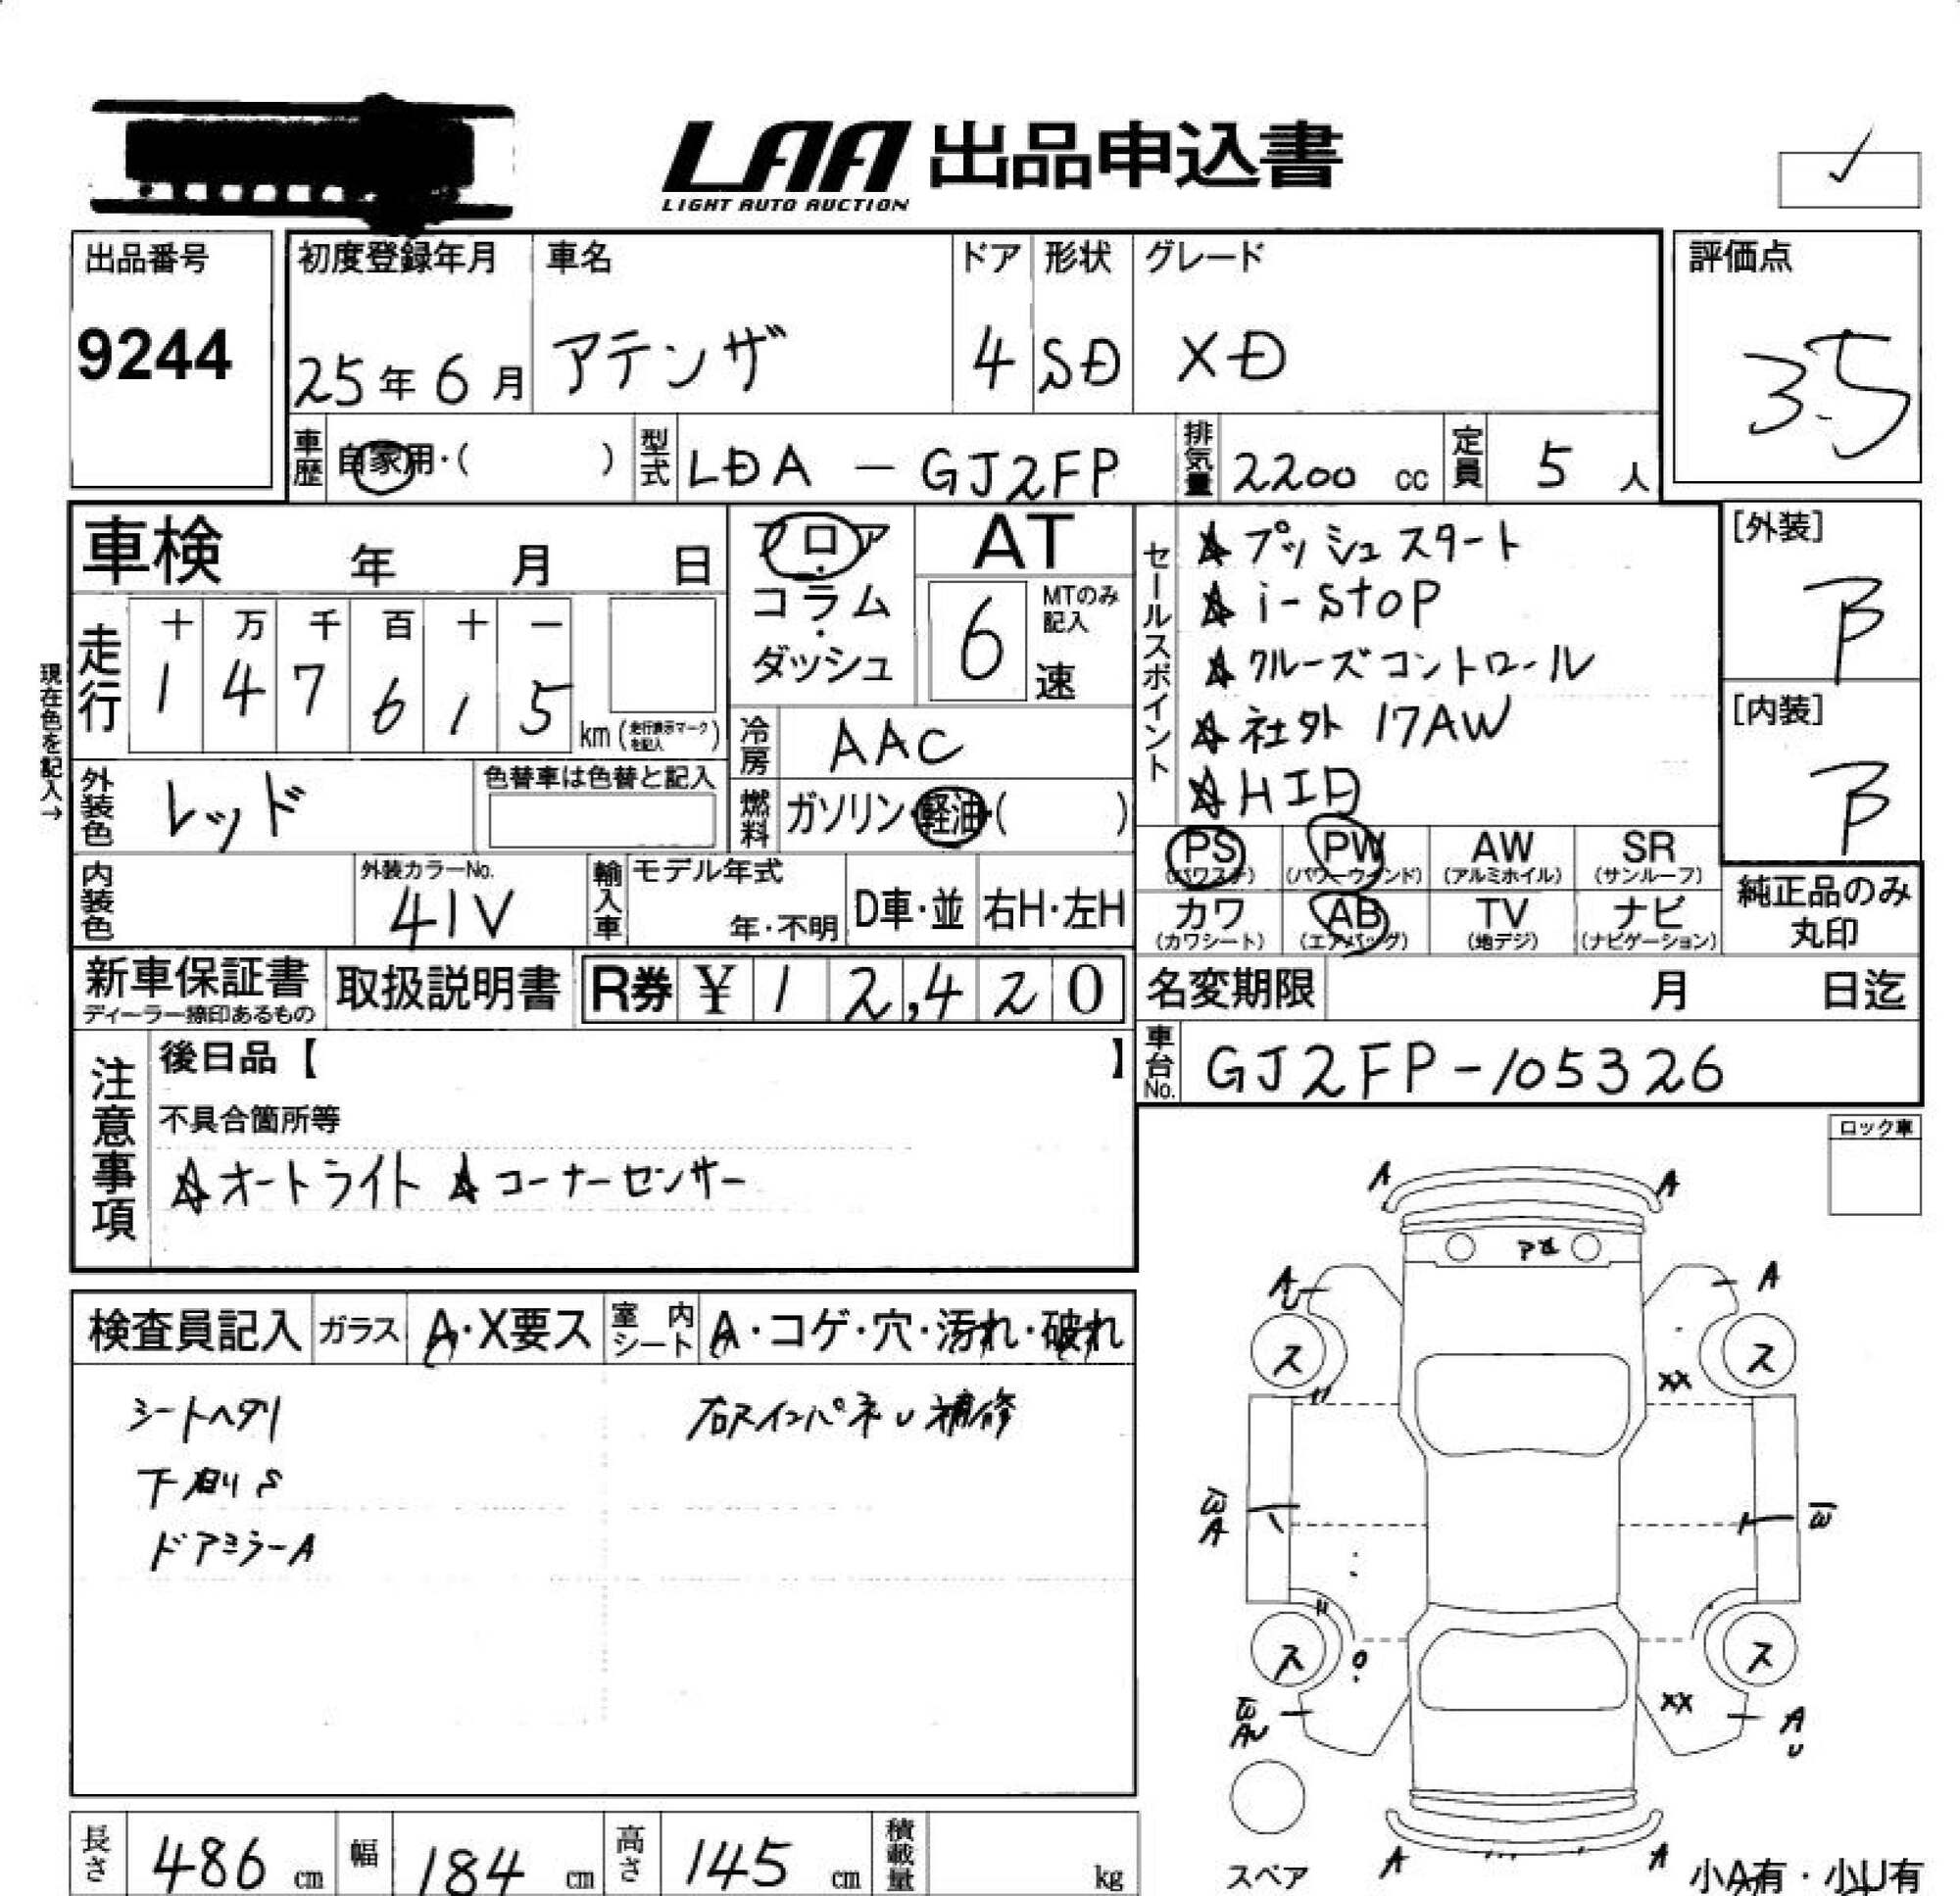 LAA 出品申込書
LIGHT AUTO AUCTION
出品番号
9244
初度登録年月 車名 ドア 形状 グレード
25年6月 アテンザ 4 SD XD
評価点
3.5
車歴 自家用・( ) 型式 LDA - GJ2FP 排気量 2200 cc 定員 5 人
車検 年 月 日
フロア・コラム・ダッシュ
AT
6 速 MTのみ記入
現在色を記入→
走行 十 万 千 百 十 一
1 4 7 6 1 5 km (走行表示マークを記入)
冷房 AAC
燃料 ガソリン・軽油・( )
外装色 レッド 色替車は色替と記入
内装色 外装カラーNo. 41V
輸入車 モデル年式 年・不明 D車・並 右H・左H
セールスポイント
☆プッシュスタート
☆i-stop
☆クルーズコントロール
☆社外 17AW
☆HID
[外装]
B
[内装]
B
PS (パワステ) PW (パワーウィンド) AW (アルミホイル) SR (サンルーフ)
カワ (カワシート) AB (エアバッグ) TV (地デジ) ナビ (ナビゲーション)
純正品のみ丸印
新車保証書 ディーラー捺印あるもの
取扱説明書
R券 ¥ 1 2,4 2 0
名変期限 月 日迄
車台No. GJ2FP-105326
注意事項
後日品【 】
不具合箇所等
☆オートライト ☆コーナーセンサー
ロック車
検査員記入 ガラス A・X要ス 室内シート A・コゲ・穴・汚れ・破れ
シートヘタリ
右スインパネU補修
下廻りS
ドアミラーA
A A
A A
ス ス
XX
W
A
W
ス ス
W
AU
XX
A
U
A A
スペア
小A有・小U有
長さ 486 cm 幅 184 cm 高さ 145 cm 積載量 kg